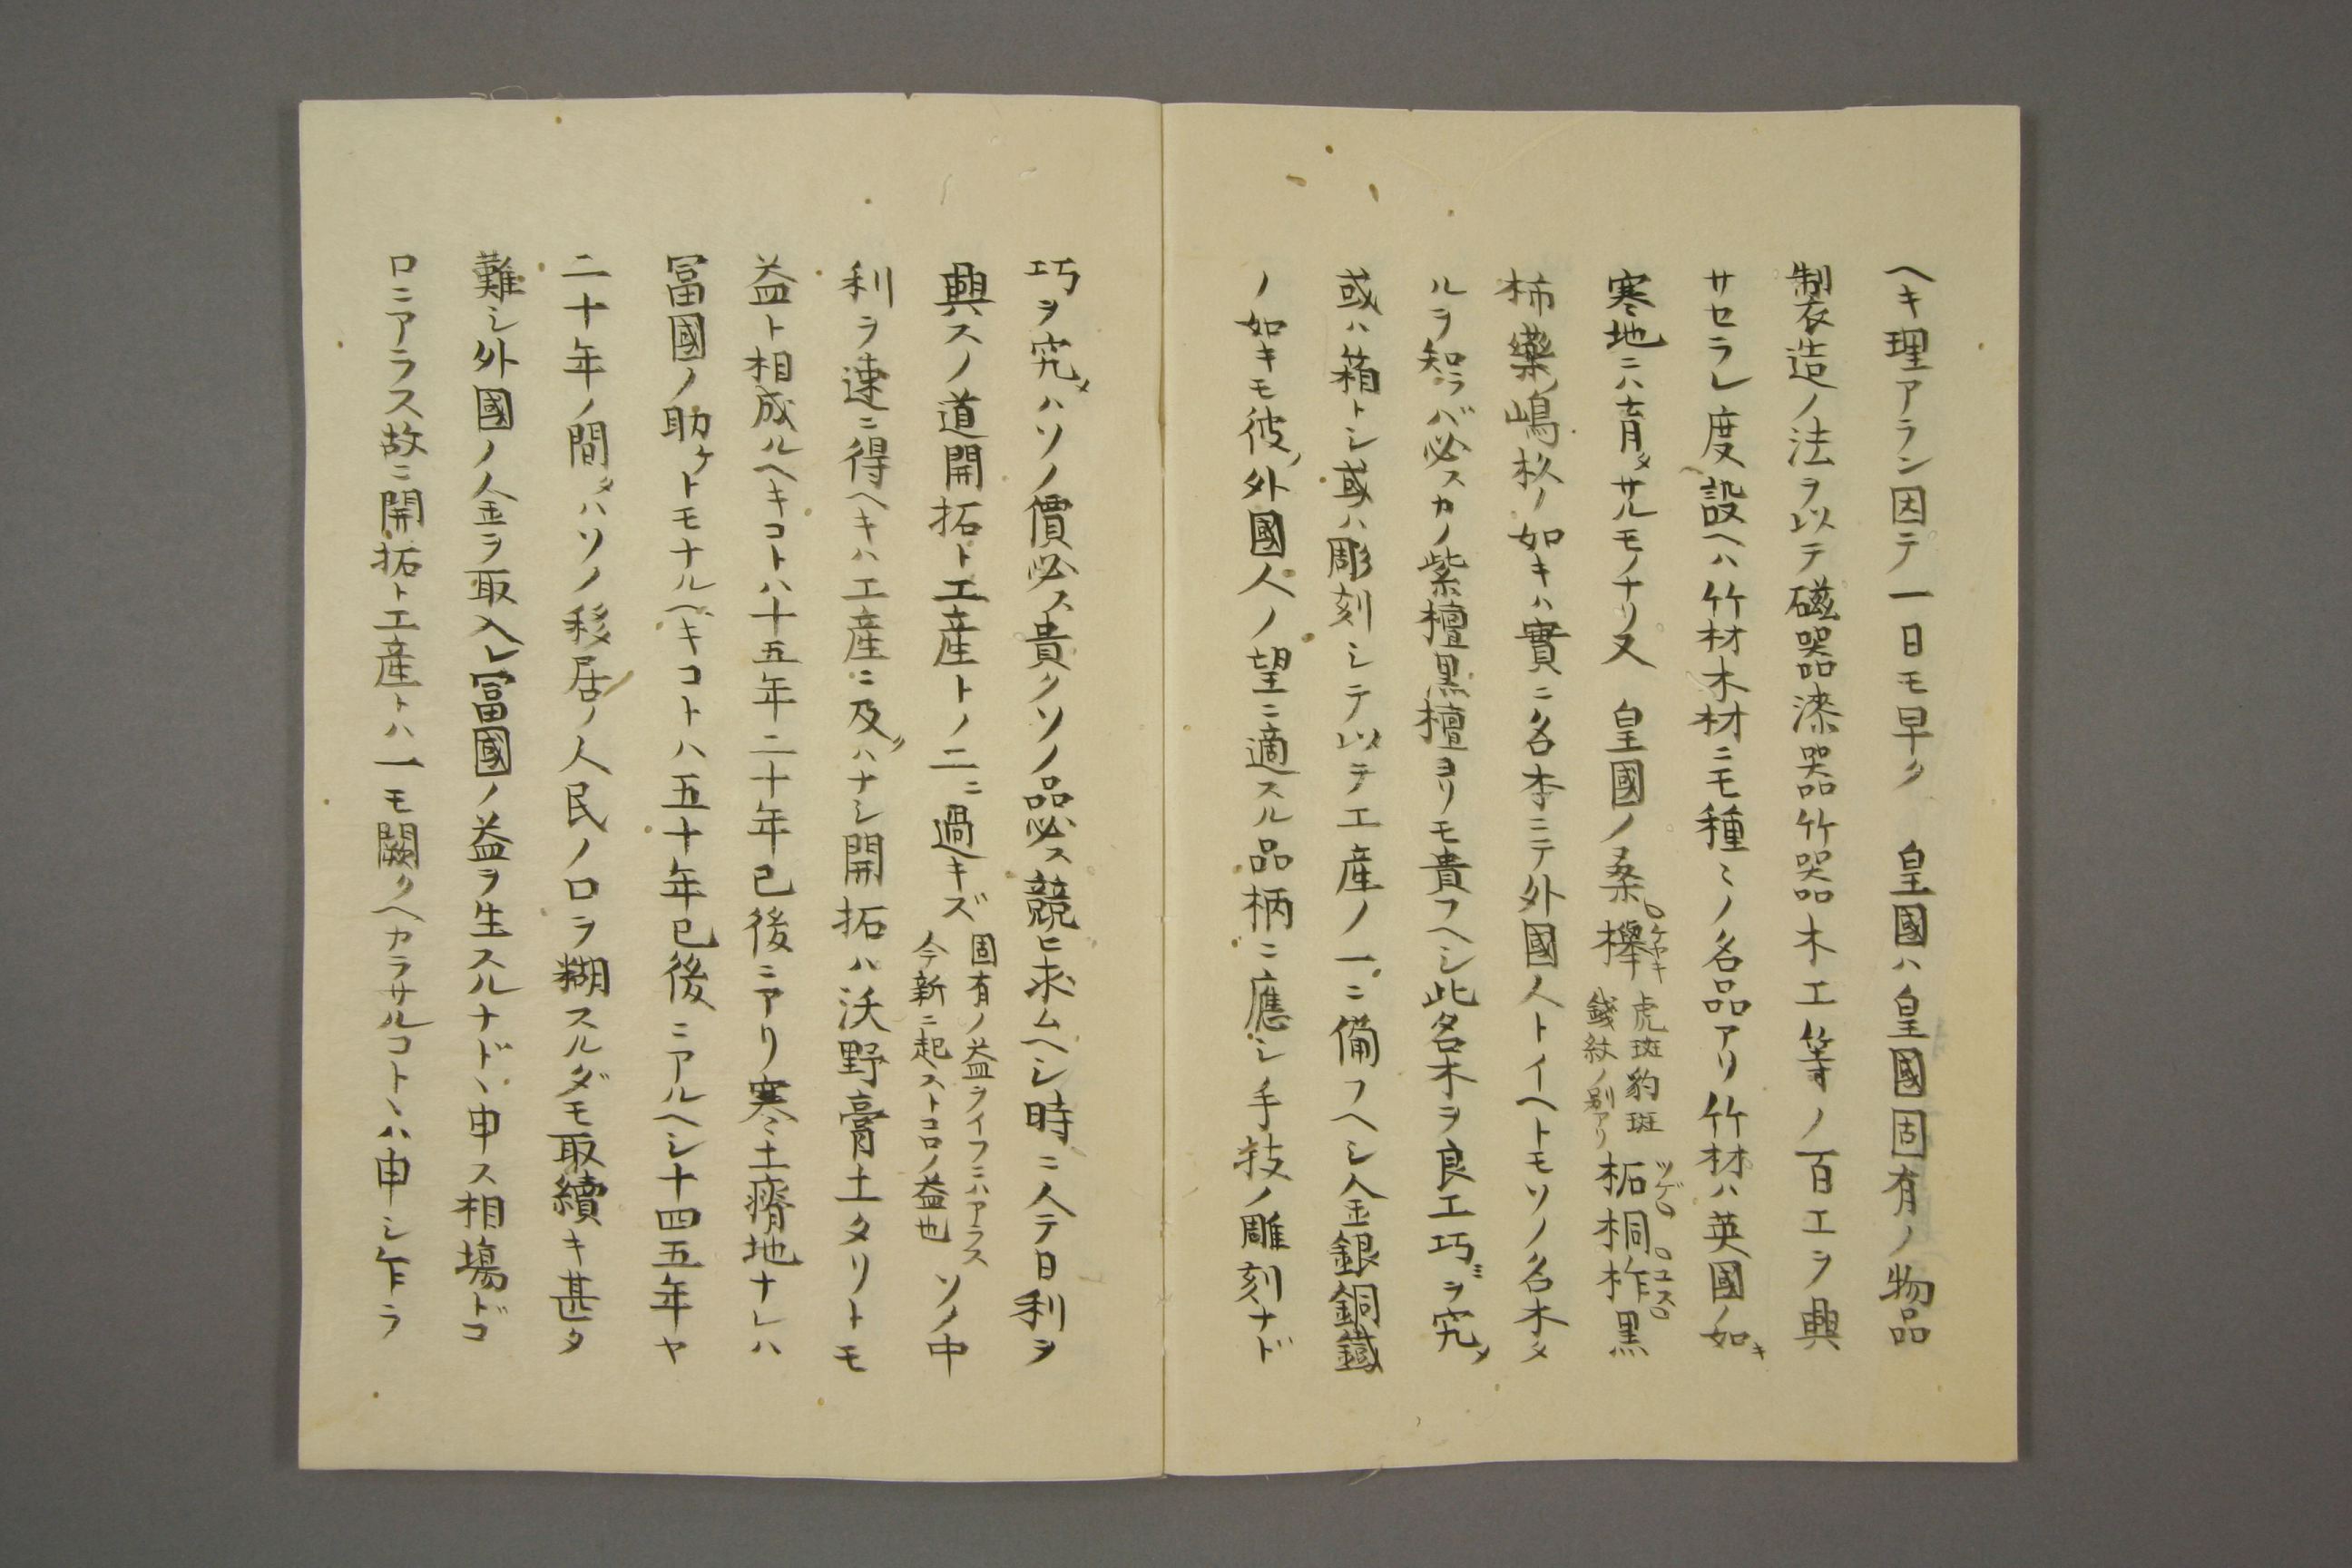 ヘキ理アラン因テ一日モ早ク　皇國ハ皇國固有ノ物品
製造ノ法ヲ以テ磁器漆器竹器木工等ノ百工ヲ興
サセラレ度設ヘハ竹材木材ニモ種〻ノ名品アリ竹材ハ英國ノ如キ
寒地ニハ育タサルモノナリ又　皇國ノ桑欅ケヤキ虎斑豹斑錢紋ノ別アリ柘ツゲ桐柞ユス黒
柿藥嶋杦ノ如キハ實ニ名木ニテ外國人トイヘトモソノ名木タ
ルヲ知ラバ必スカノ紫檀黒檀ヨリモ貴フヘシ此名木ヲ良工巧ミヲ究メ
或ハ箱トシ或ハ彫刻シテ以テ工産ノ一ニ備フヘシ金銀銅鐵
ノ如キモ彼ノ外國人ノ望ニ適スル品柄ニ應シ手技ノ雕刻ナド
巧ヲ究メハソノ價必ス貴クソノ品必ス競ヒ求ムヘシ時ニ人テ日利ヲ
興スノ道開拓ト工産トノ二ニ過キズ固有ノ益ヲイフニハアラス今新ニ起ストコロノ益也ソノ中
利ヲ速ニ得ヘキハ工産ニ及ハナシ開拓ハ沃野膏土タリトモ
益ト相成ルヘキコトハ十五年二十年已後ニアリ寒土瘠地ナレハ
富國ノ助ケトモナルベキコトハ五十年已後ニアルヘシ十四五年ヤ
二十年ノ間タハソノ移居ノ人民ノ口ヲ糊スルダモ取續キ甚タ
難シ外國ノ金ヲ取入レ富國ノ益ヲ生スルナド、申ス相場ドコ
ロニアラス故ニ開拓ト工産トハ一モ闕クヘカラサルコト、ハ申シ乍ラ